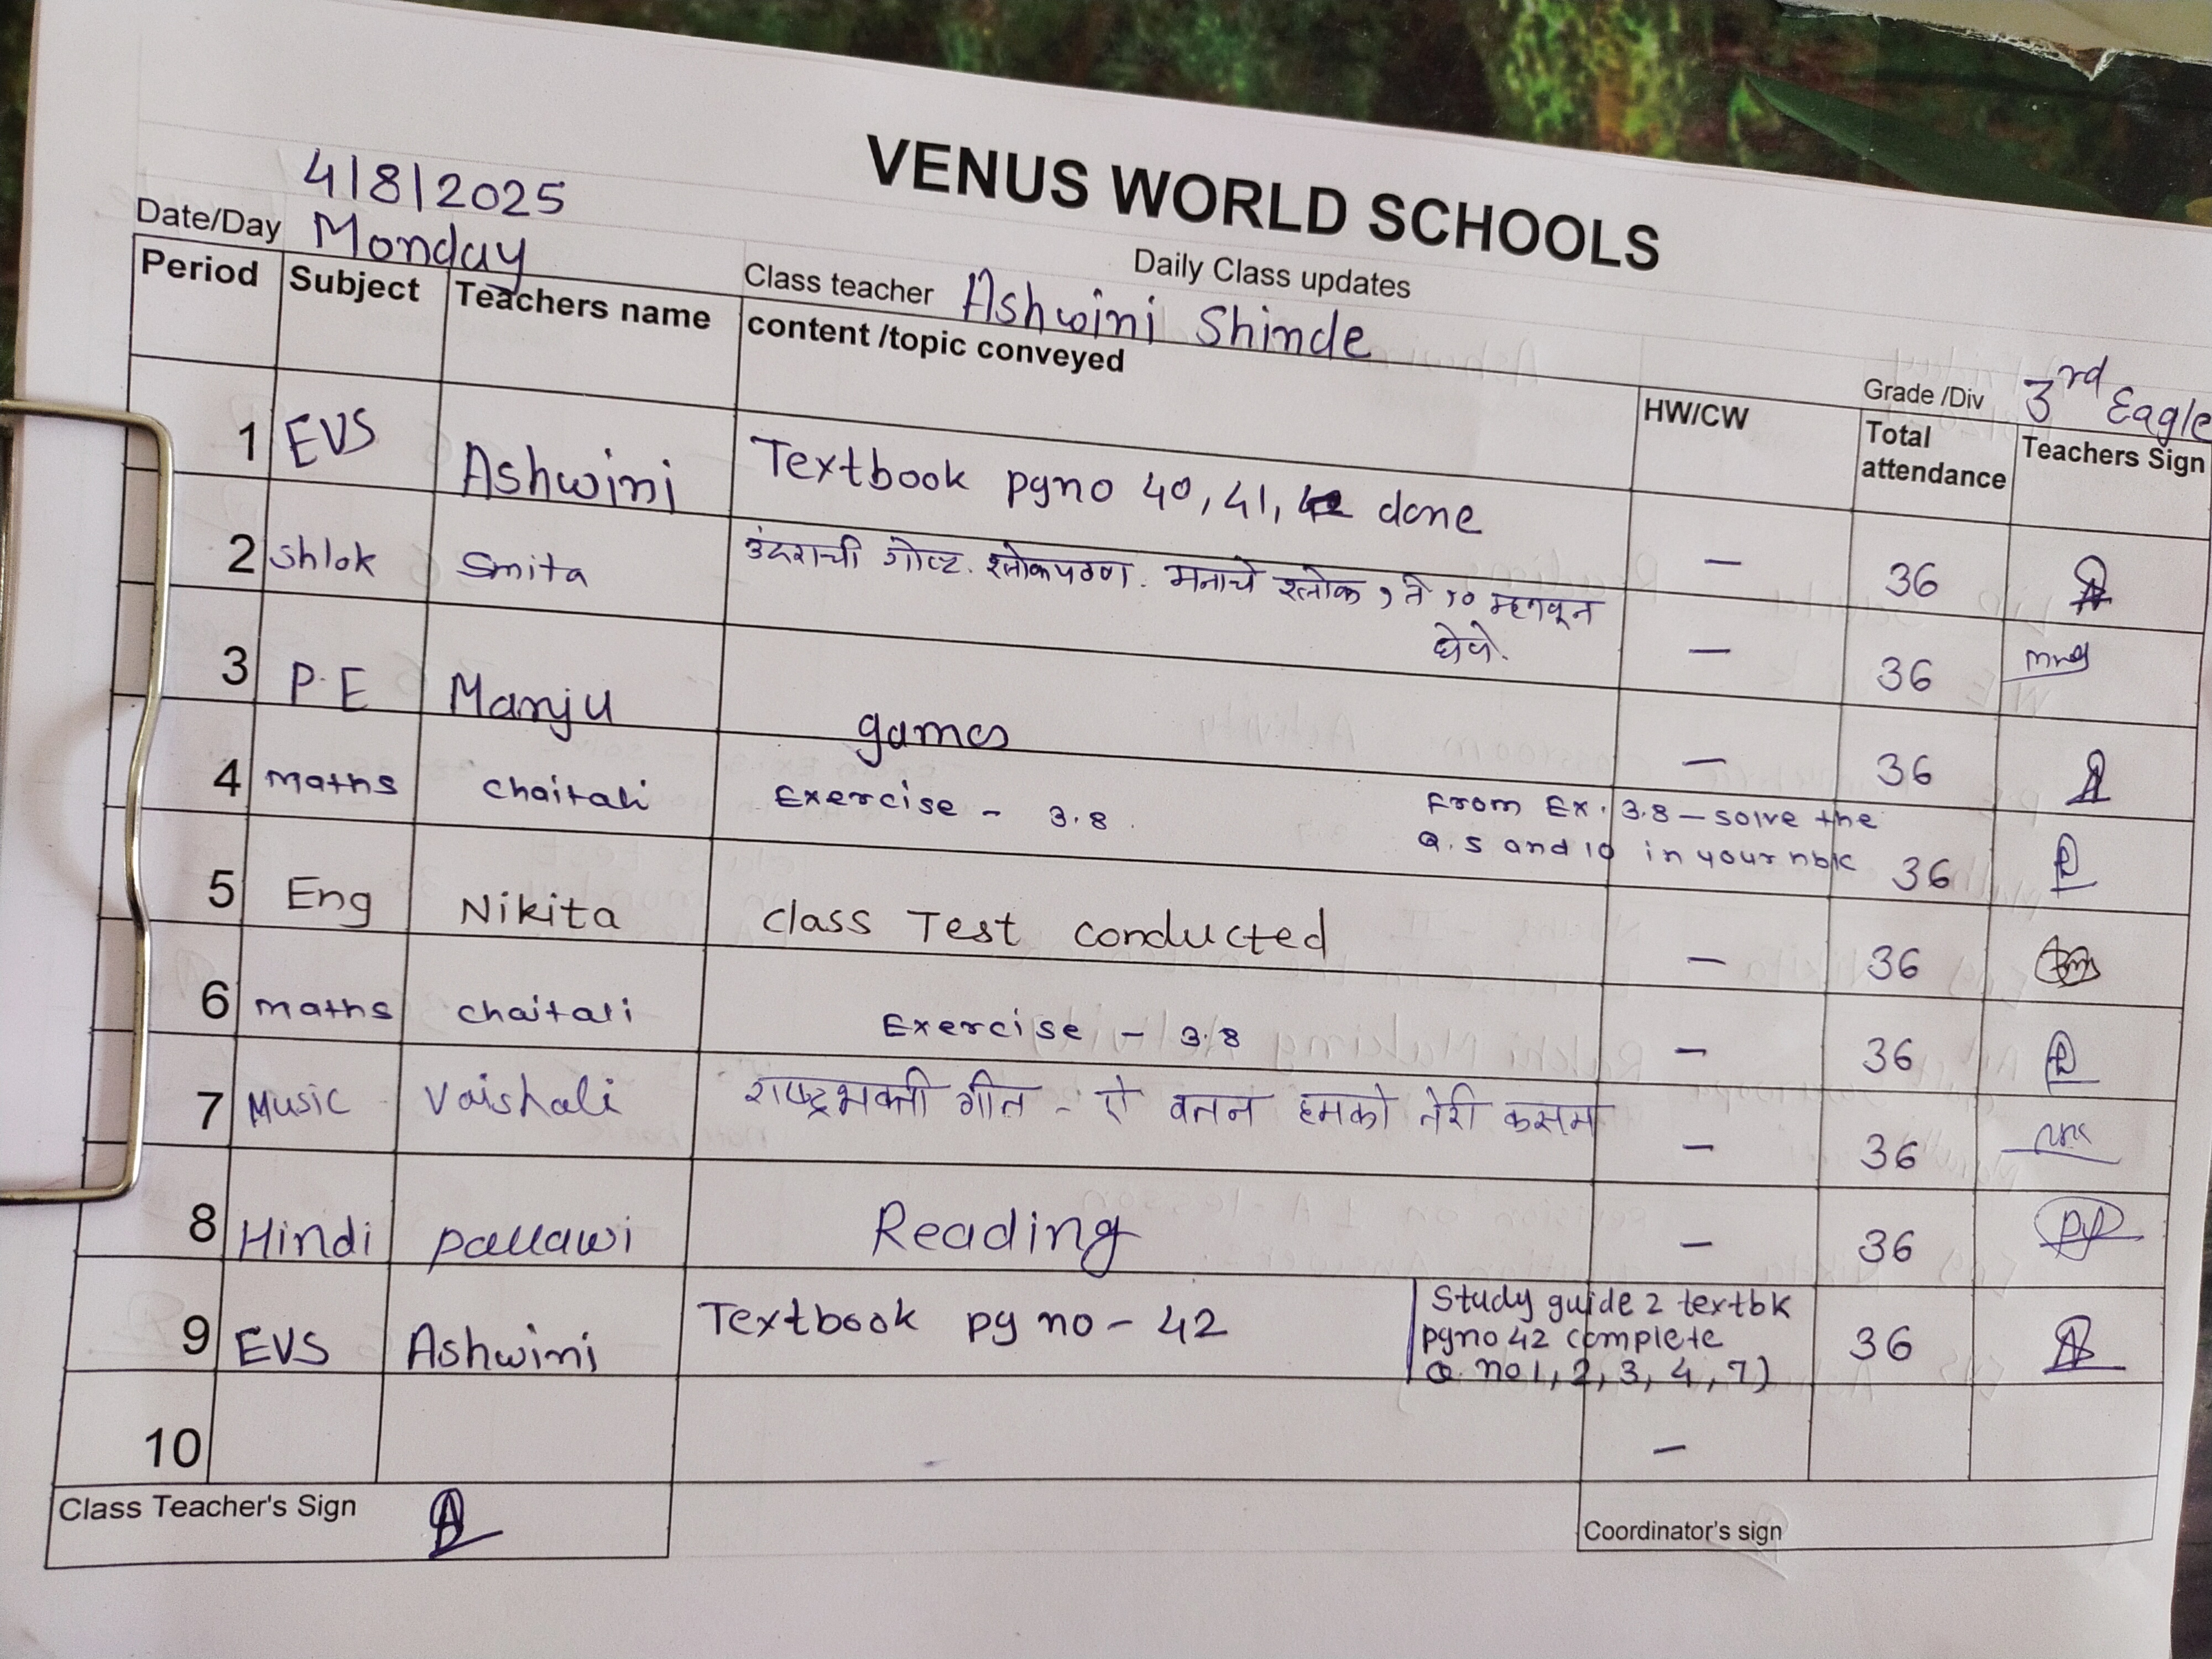 VENUS WORLD SCHOOLS
Daily Class updates
4/8/2025
Date/Day Monday
Class teacher Ashwini Shinde
Grade /Div 3rd Eagle
Period Subject Teachers name content /topic conveyed HW/CW Total attendance Teachers Sign
1 EVS Ashwini Textbook pgno 40, 41, done — 36
2 Shlok Smita उंदराची गोष्ट. श्लोकपठण. मनाचे श्लोक १ ते १० म्हणवून
घेणे. — 36
3 P.E Manju games — 36
4 maths chaitali Exercise - 3.8 From Ex. 3.8 – solve the
Q. 5 and 10 in your nbk 36
5 Eng Nikita class Test conducted — 36
6 maths chaitali Exercise - 3.8 — 36
7 Music Vaishali राष्ट्रभक्ती गीत - ऐ वतन हमको तेरी कसम — 36
8 Hindi Pallawi Reading — 36
9 EVS Ashwini Textbook pg no - 42 Study guide 2 textbk
pgno 42 complete
Q. no 1, 2, 3, 4, 7) 36
10 —
Class Teacher's Sign
Coordinator's sign